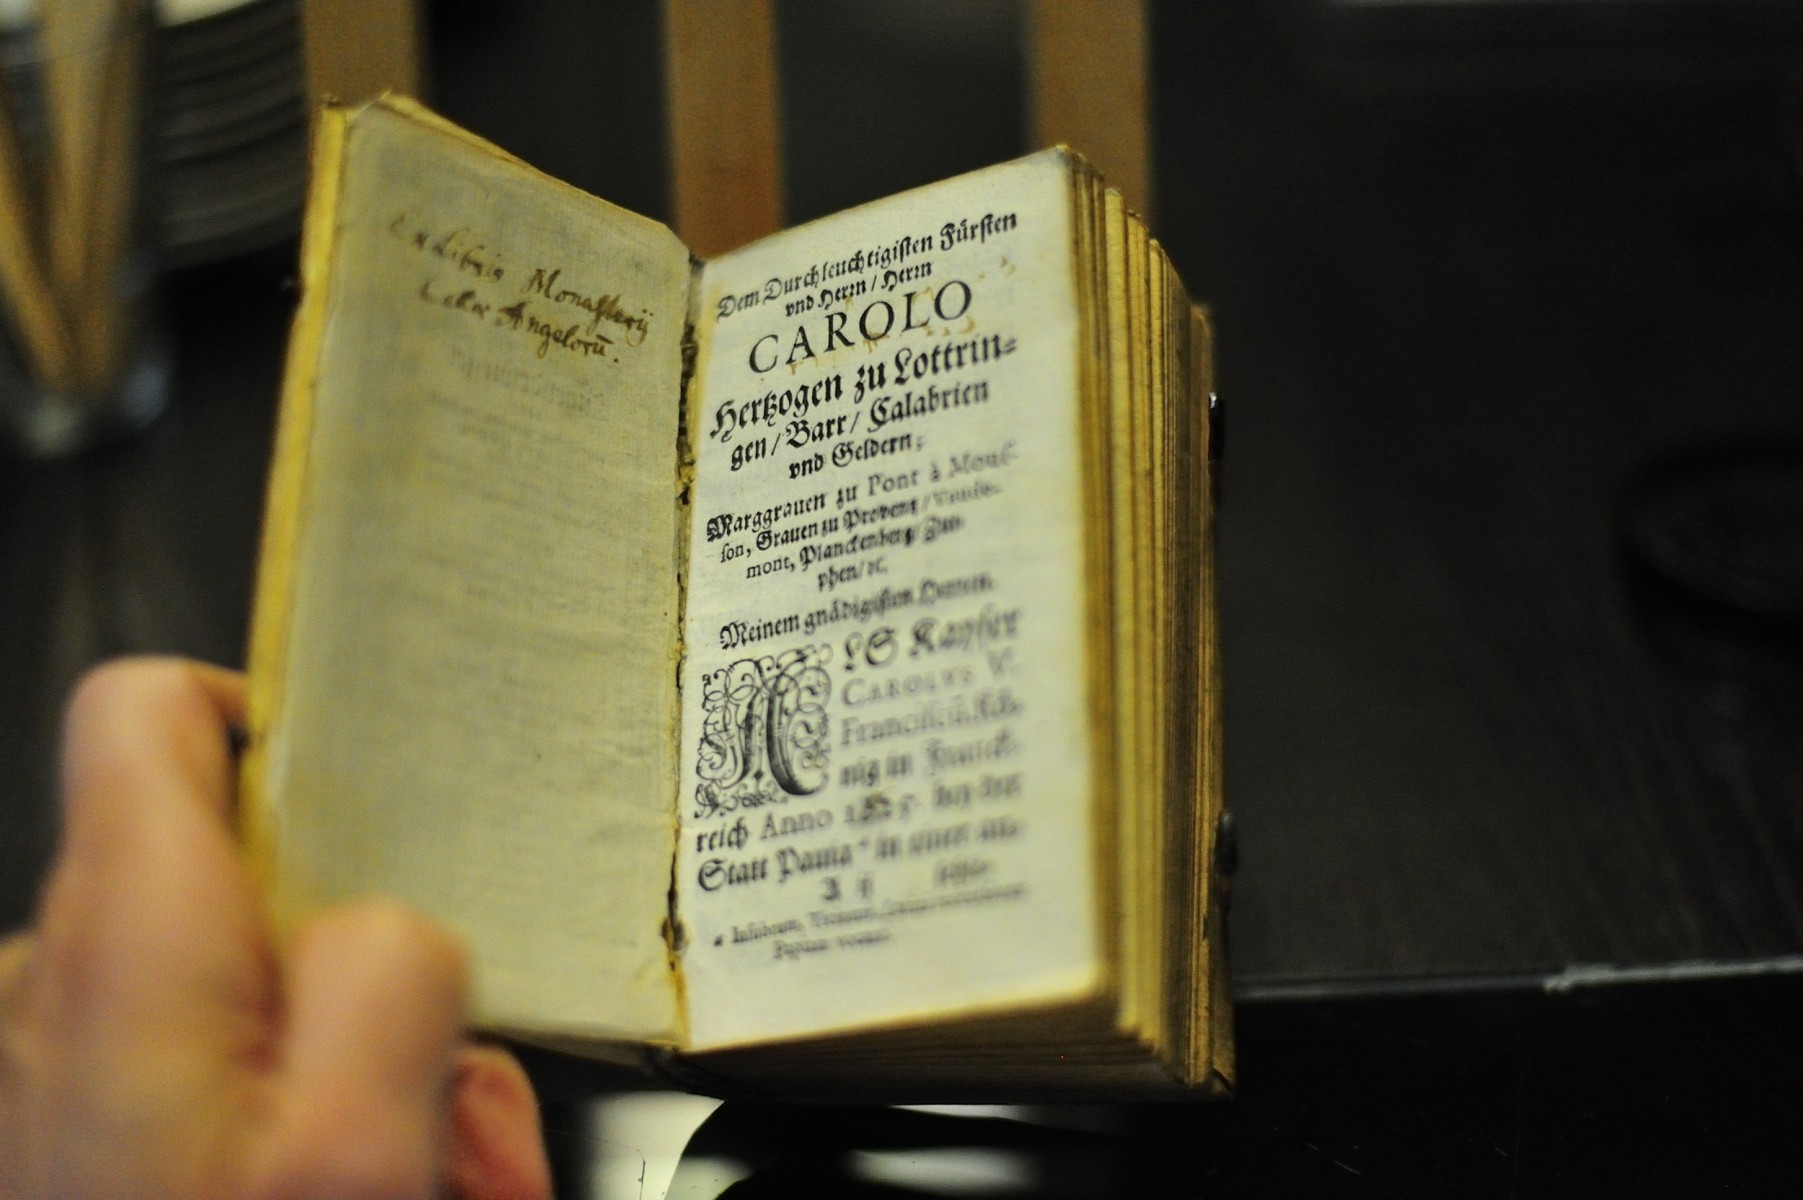 Ex Libris Monasterij
Angelorū.
Dem Durchleuchtigisten Fürsten
vnd Herrn / Herrn
CAROLO
Hertzogen zu Lottrin=
gen / Barr / Calabrien
vnd Geldern;
Marggrauen zu Pont à Mous-
son, Grauen zu Proventz / Vaude-
mont, Planckenberg / Züt-
phen / ꝛc.
Meinem gnädigisten Herren.
ALS Kayser
CAROLVS V.
Franciscū, Kö-
nig in Franck-
reich Anno 1525. bey der
Statt Pauia * in einer
A ij
* Insubrum, Ticinum,
Papiam vocant.